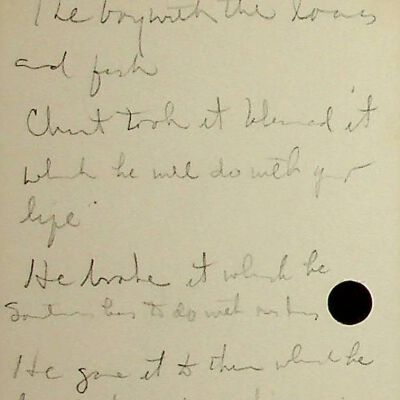 The boy with the loaves
and fish
Christ took it blessed it
which he will do with your
life"
He broke it which he
Sometimes has to do with
He gave it to them which he